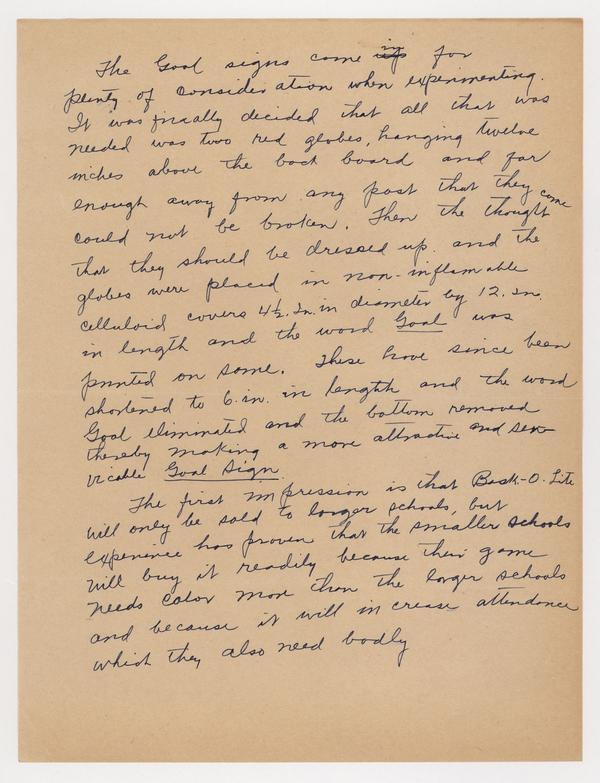 The Goal signs come in for
plenty of consideration when experimenting.
It was finally decided that all that was
needed was two red globes, hanging twelve
inches above the back board and far
enough away from any post that they
could not be broken. Then the thought come
that they should be dressed up. and the
globes were placed in non-inflamable
celluloid covers 4½. In. in diameter by 12. In.
in length and the word Goal was
printed on some. These have since been
shortened to 6. in. in length and the word
Goal eliminated and the bottom removed
thereby making a more attractive and ser-
vicable Goal Sign.
The first impression is that Bask-O-Lite
will only be sold to larger schools, but
experience has proven that the smaller schools
will buy it readily because their game
needs color more than the larger schools
and because it will increase attendance
which they also need badly